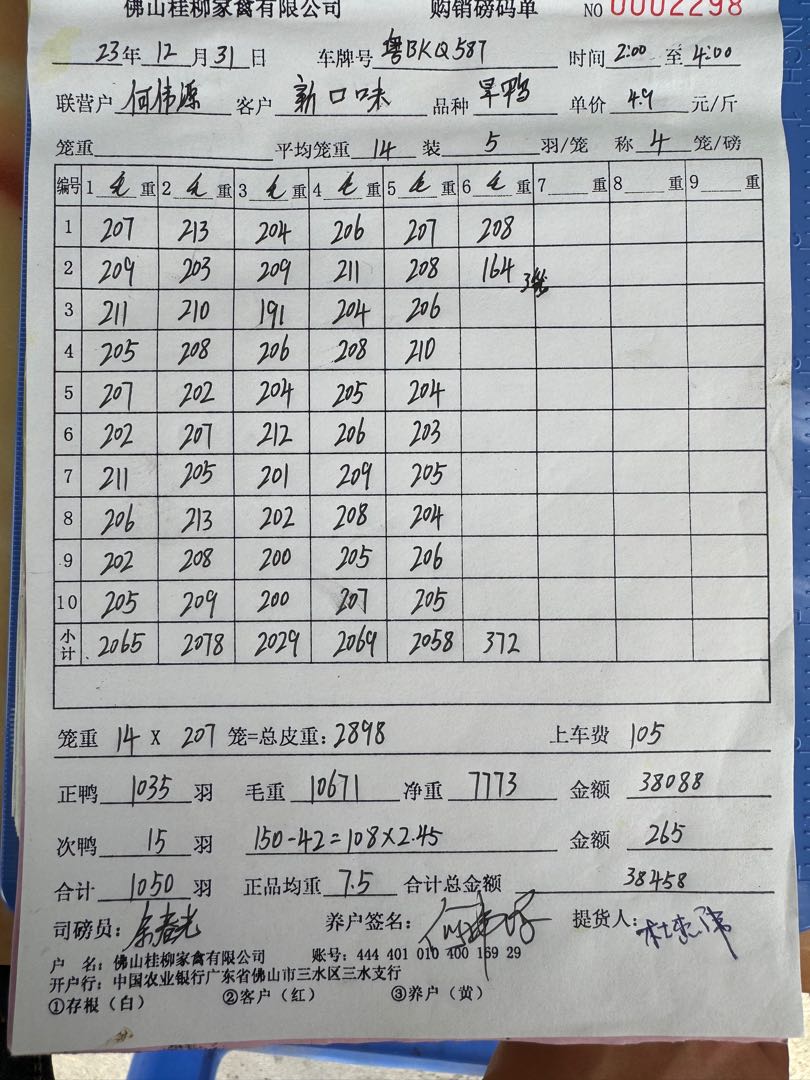 佛山桂柳家禽有限公司 购销磅码单 NO 0002298
23年12月31日 车牌号 粤BKQ587 时间 2:00 至 4:00
联营户 何伟源 客户 新口味 品种 旱鸭 单价 4.9 元/斤
笼重 平均笼重 14 装 5 羽/笼 称 4 笼/磅
编号 1 毛 重 2 毛 重 3 毛 重 4 毛 重 5 毛 重 6 毛 重 7 重 8 重 9 重
1 207 213 204 206 207 208
2 209 203 209 211 208 164 3笼
3 211 210 191 204 206
4 205 208 206 208 210
5 207 202 204 205 204
6 202 207 212 206 203
7 211 205 201 209 205
8 206 213 202 208 204
9 202 208 200 205 206
10 205 209 200 207 205
小计 2065 2078 2029 2069 2058 372
笼重 14 X 207 笼=总皮重:2898 上车费 105
正鸭 1035 羽 毛重 10671 净重 7773 金额 38088
次鸭 15 羽 150-42=108×2.45 金额 265
合计 1050 羽 正品均重 7.5 合计总金额 38458
司磅员: 养户签名: 提货人:
户 名:佛山桂柳家禽有限公司 账号:444 401 010 400 169 29
开户行:中国农业银行广东省佛山市三水区三水支行
①存根(白) ②客户(红) ③养户(黄)